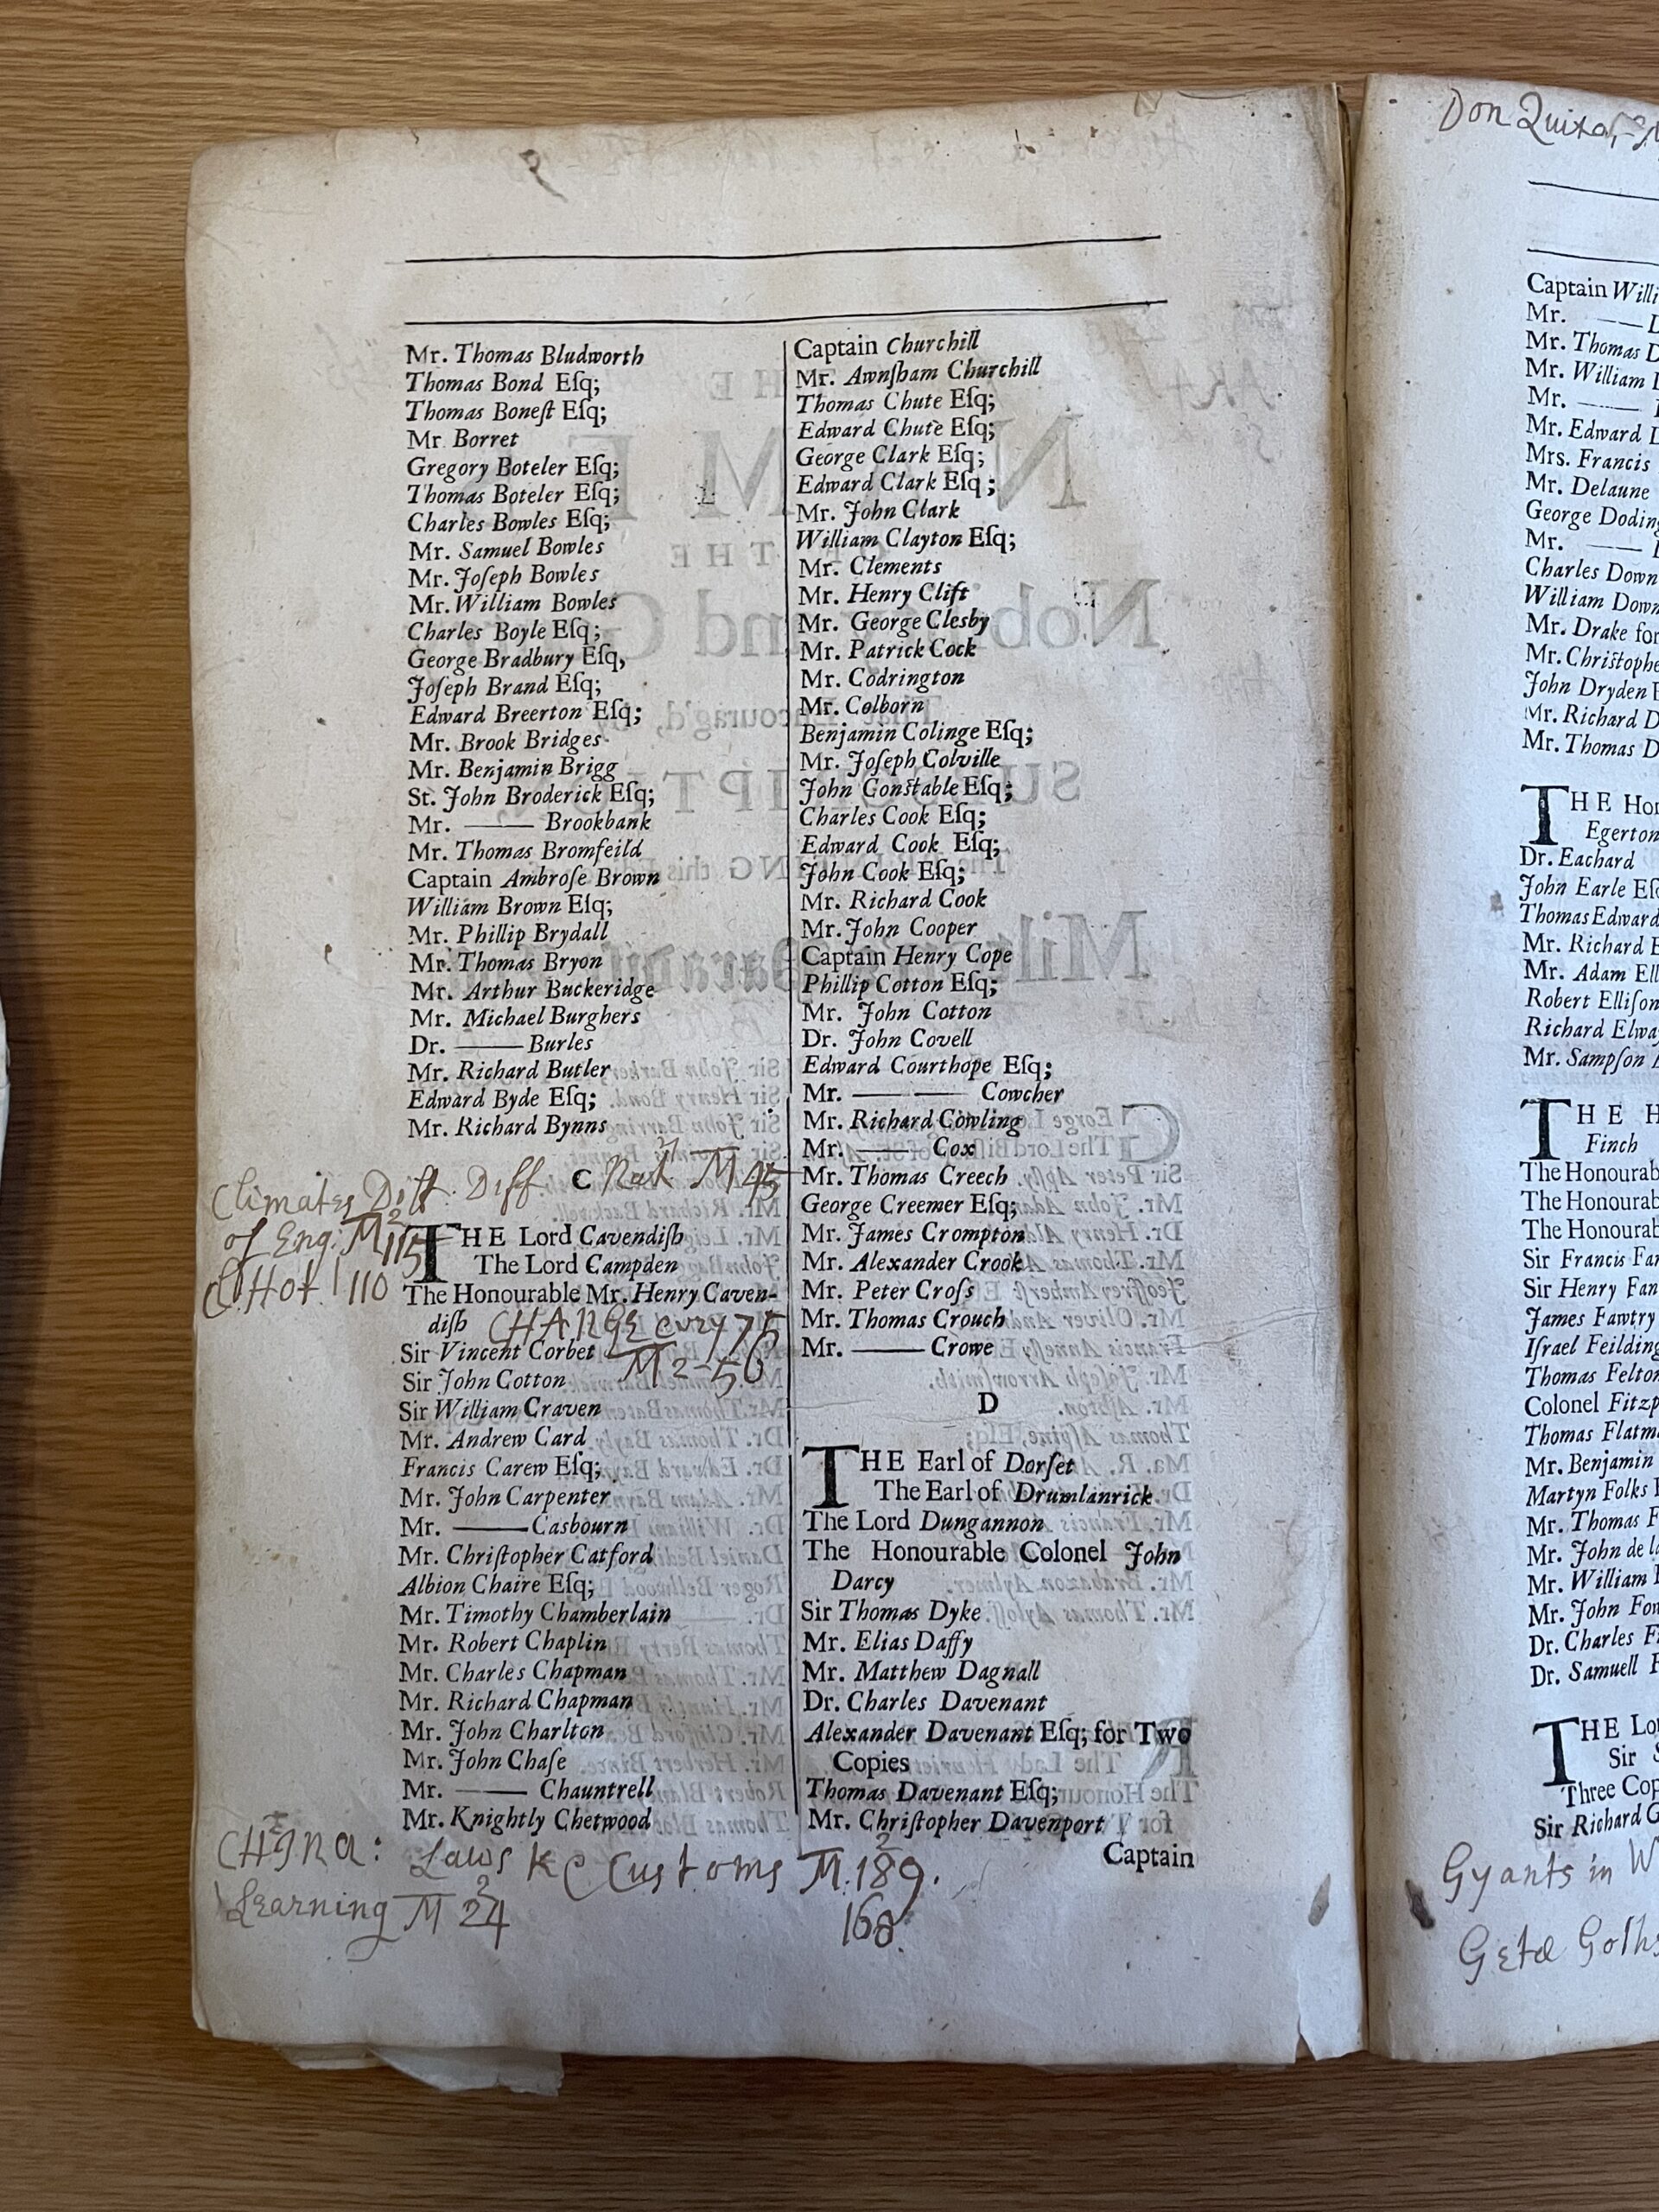 Mr. Thomas Bludworth
Thomas Bond Eſq;
Thomas Boneſt Eſq;
Mr. Borret
Gregory Boteler Eſq;
Thomas Boteler Eſq;
Charles Bowles Eſq;
Mr. Samuel Bowles
Mr. Joſeph Bowles
Mr. William Bowles
Charles Boyle Eſq;
George Bradbury Eſq,
Joſeph Brand Eſq;
Edward Breerton Eſq;
Mr. Brook Bridges
Mr. Benjamin Brigg
St. John Broderick Eſq;
Mr. —— Brookbank
Mr. Thomas Bromfeild
Captain Ambroſe Brown
William Brown Eſq;
Mr. Phillip Brydall
Mr. Thomas Bryon
Mr. Arthur Buckeridge
Mr. Michael Burghers
Dr. —— Burles
Mr. Richard Butler
Edward Byde Eſq;
Mr. Richard Bynns
Climates Diff. Diff C M 45
of Eng: M 2 115
Hot 110
THE Lord Cavendiſh
The Lord Campden
The Honourable Mr. Henry Caven-
diſh CHANGE 75
Sir Vincent Corbet M 2-56
Sir John Cotton
Sir William Craven
Mr. Andrew Card
Francis Carew Eſq;
Mr. John Carpenter
Mr. —— Casbourn
Mr. Chriſtopher Catford
Albion Chaire Eſq;
Mr. Timothy Chamberlain
Mr. Robert Chaplin
Mr. Charles Chapman
Mr. Richard Chapman
Mr. John Charlton
Mr. John Chaſe
Mr. —— Chauntrell
Mr. Knightly Chetwood
Captain Churchill
Mr. Awnſham Churchill
Thomas Chute Eſq;
Edward Chute Eſq;
George Clark Eſq;
Edward Clark Eſq;
Mr. John Clark
William Clayton Eſq;
Mr. Clements
Mr. Henry Clift
Mr. George Clesby
Mr. Patrick Cock
Mr. Codrington
Mr. Colborn
Benjamin Colinge Eſq;
Mr. Joſeph Colville
John Conſtable Eſq;
Charles Cook Eſq;
Edward Cook Eſq;
John Cook Eſq;
Mr. Richard Cook
Mr. John Cooper
Captain Henry Cope
Phillip Cotton Eſq;
Mr. John Cotton
Dr. John Covell
Edward Courthope Eſq;
Mr. —— —— Cowcher
Mr. Richard Cowling
Mr. —— Cox
Mr. Thomas Creech
George Creemer Eſq;
Mr. James Crompton
Mr. Alexander Crook
Mr. Peter Croſs
Mr. Thomas Crouch
Mr. —— Crowe
D
THE Earl of Dorſet
The Earl of Drumlanrick
The Lord Dungannon
The Honourable Colonel John
Darcy
Sir Thomas Dyke
Mr. Elias Daffy
Mr. Matthew Dagnall
Dr. Charles Davenant
Alexander Davenant Eſq; for Two
Copies
Thomas Davenant Eſq;
Mr. Chriſtopher Davenport
Captain
China: Laws & Customs M. 2 189.
Learning M 2 24 168.
Don
Captain
Mr. ——
Mr. Thomas
Mr. William
Mr. ——
Mr. Edward
Mrs. Francis
Mr. Delaune
George
Mr. ——
Charles
William
Mr. Drake for
Mr.
John Dryden
Mr. Richard
Mr. Thomas
THE
Egerton
Dr. Eachard
John Earle
Thomas
Mr. Richard
Mr. Adam
Robert
Richard
Mr. Sampſon
THE
Finch
The
The
The
Sir Francis
Sir Henry
James Fawtry
Iſrael
Thomas
Colonel
Thomas
Mr. Benjamin
Martyn Folks
Mr. Thomas
Mr. John de
Mr. William
Mr. John
Dr. Charles
Dr. Samuell
THE
Sir
Three
Sir Richard
Gyants in